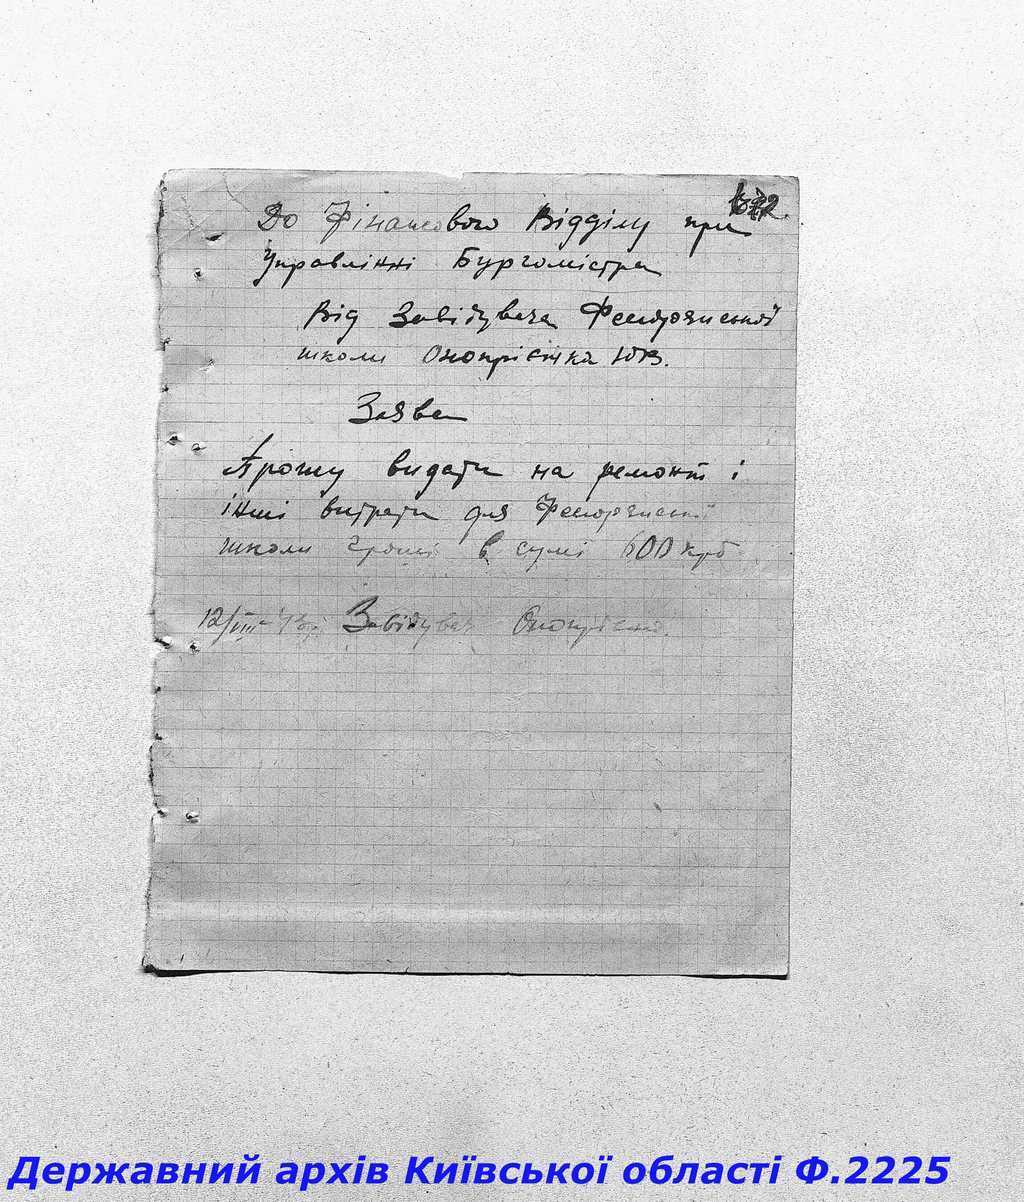 До Фінансового Відділу при
Управлінні Бургомістра
Від Завідувача
школи Онопрієнка
Заява
Прошу видати на ремонт і
інші витрати для
школи гроші в сумі 600 крб
12/VIII-43 Завідувач Онопрієнко
Державний архів Київської області Ф.2225